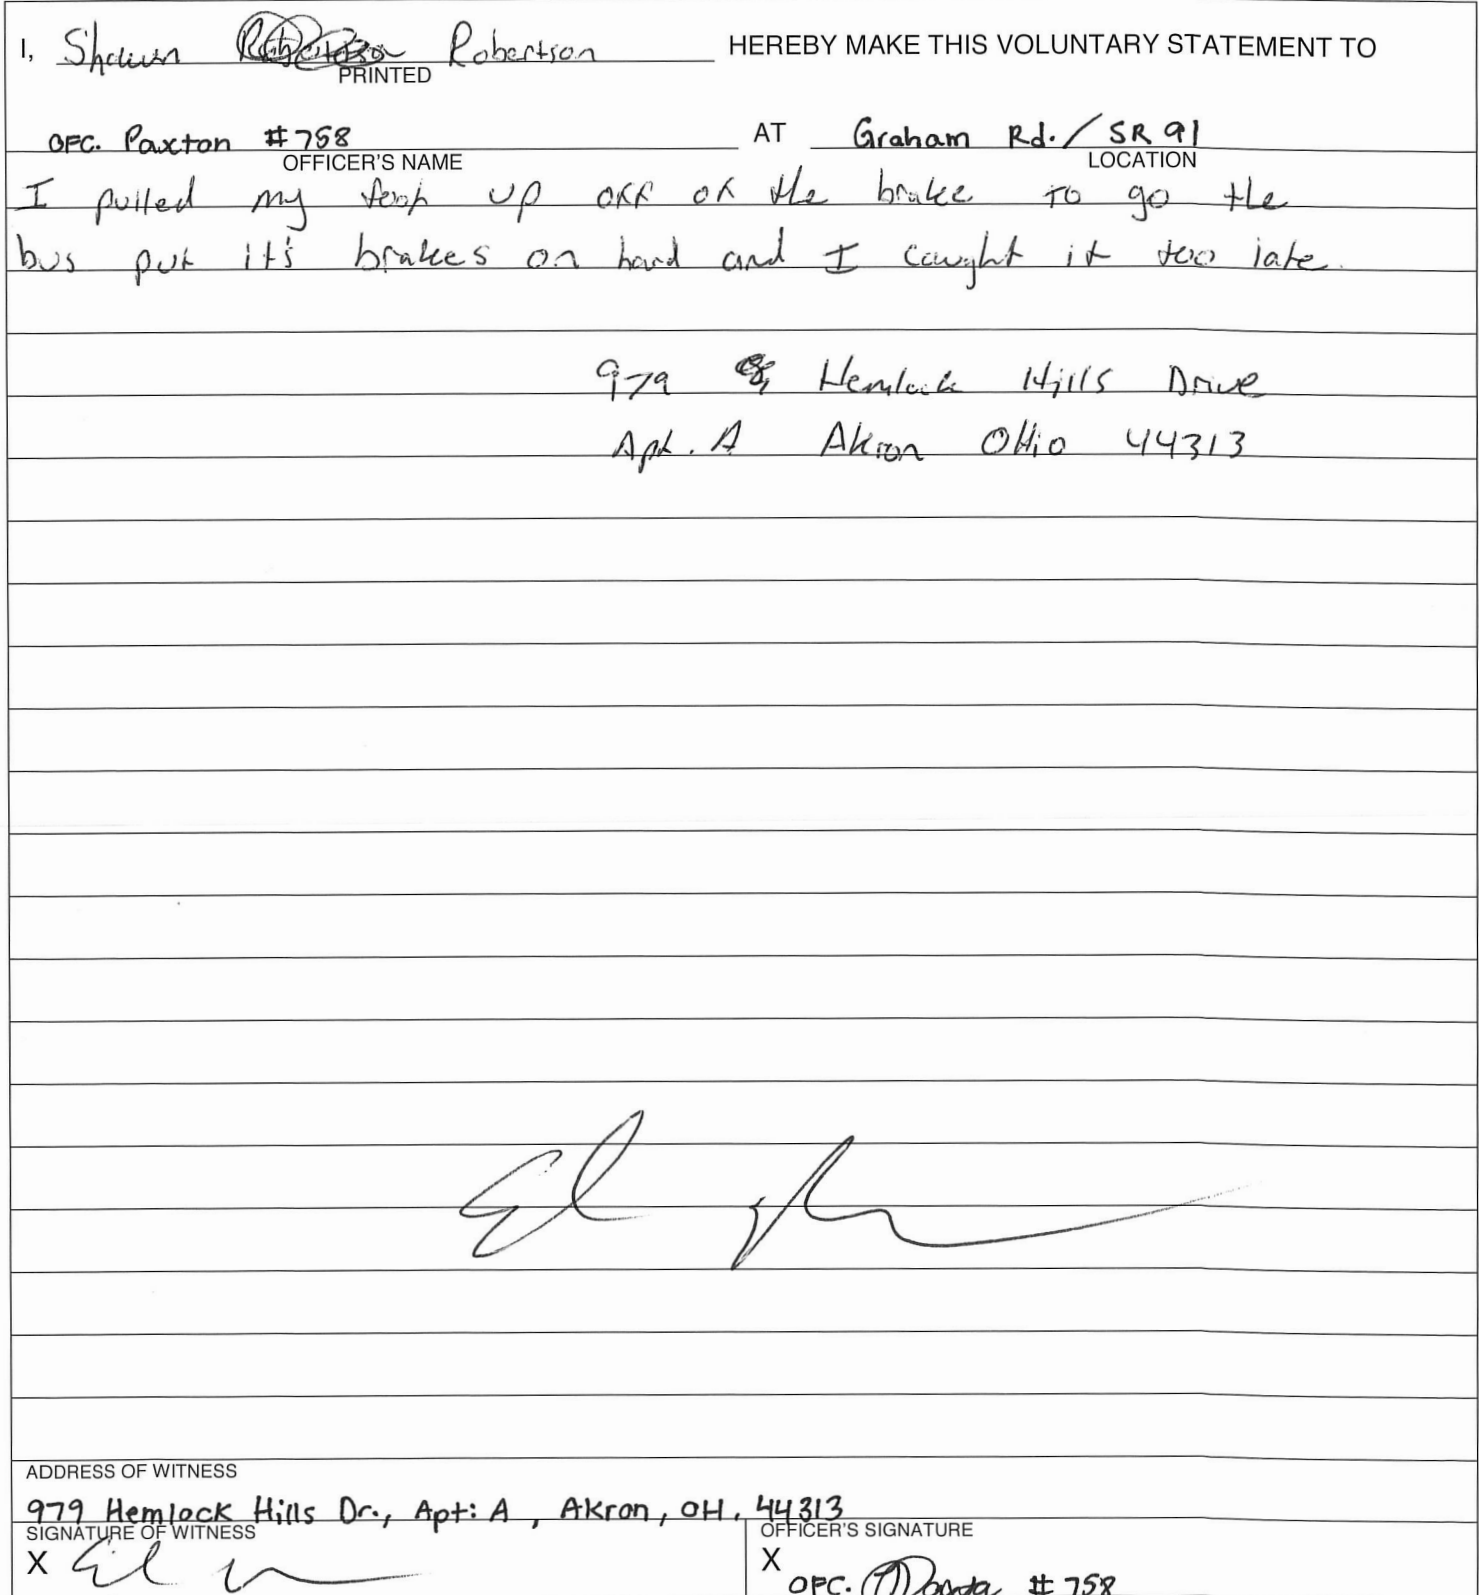 I, Shawn Robertson HEREBY MAKE THIS VOLUNTARY STATEMENT TO
PRINTED
OFC. Paxton #758 AT Graham Rd./SR 91
OFFICER'S NAME LOCATION
I pulled my foot up off of the brake to go the
bus put it's brakes on hard and I caught it too late.
979 Hemlock Hills Drive
Apt. A Akron OHio 44313
ADDRESS OF WITNESS
979 Hemlock Hills Dr., Apt: A, Akron, OH, 44313
SIGNATURE OF WITNESS OFFICER'S SIGNATURE
X X
OFC. #758